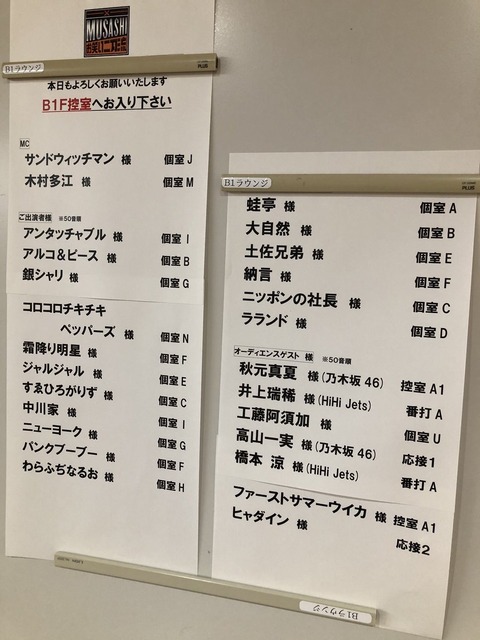 MUSASHI
お笑い二刀流
B1ラウンジ
PLUS
本日もよろしくお願いいたします
B1F控室へお入り下さい
MC
サンドウィッチマン 様 個室 J
木村多江 様 個室 M
ご出演者様 ※50音順
アンタッチャブル 様 個室 I
アルコ&ピース 様 個室 B
銀シャリ 様 個室 G
コロコロチキチキ
ペッパーズ 様 個室 N
霜降り明星 様 個室 F
ジャルジャル 様 個室 E
すゑひろがりず 様 個室 C
中川家 様 個室 I
ニューヨーク 様 個室 G
バンクブーブー 様 個室 F
わらふぢなるお 様 個室 H
B1ラウンジ
PLUS
蛙亭 様 個室 A
大自然 様 個室 B
土佐兄弟 様 個室 E
納言 様 個室 F
ニッポンの社長 様 個室 C
ラランド 様 個室 D
オーディエンスゲスト 様 ※50音順
秋元真夏 様 (乃木坂 46) 控室 A1
井上瑞稀 様 (HiHi Jets) 番打 A
工藤阿須加 様 個室 U
高山一実 様 (乃木坂 46) 応接1
橋本 涼 様 (HiHi Jets) 番打 A
ファーストサマーウイカ 様 控室 A1
ヒャダイン 様 応接2
B1ラウンジ